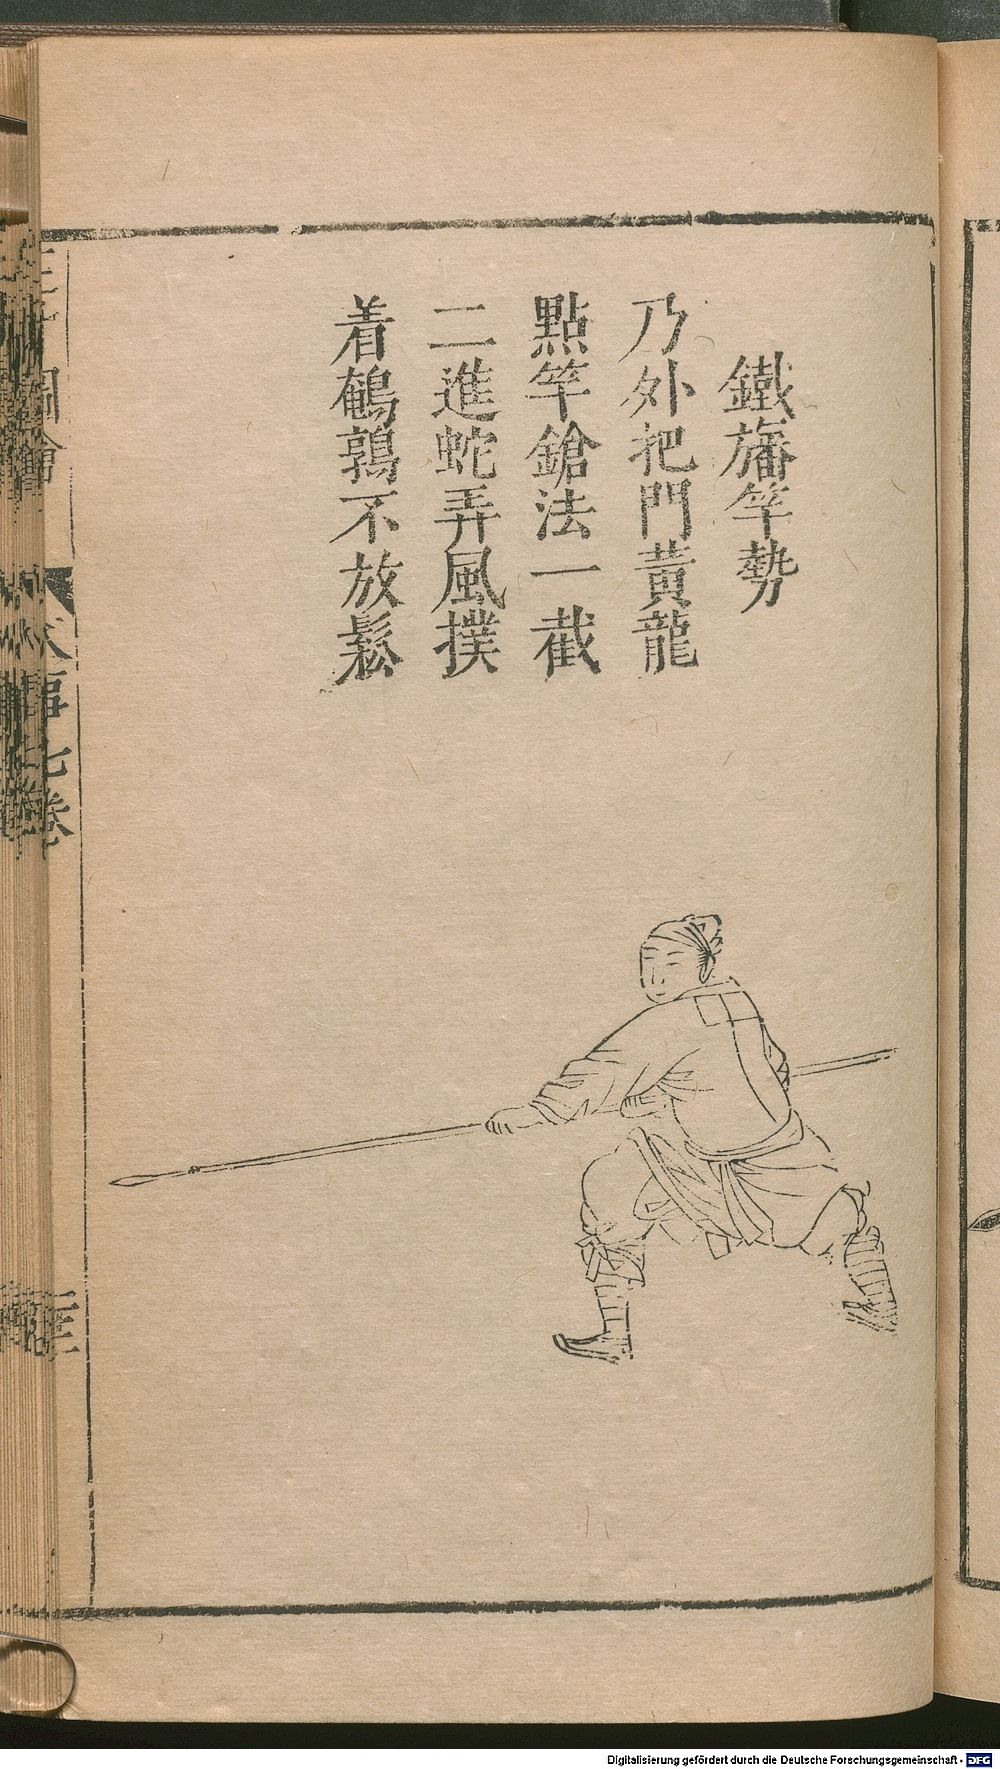 鐵旛竿勢
乃外把門黃龍
點竿鎗法一截
二進蛇弄風撲
着鵪鶉不放鬆
人事七卷
Digitalisierung gefördert durch die Deutsche Forschungsgemeinschaft - DFG